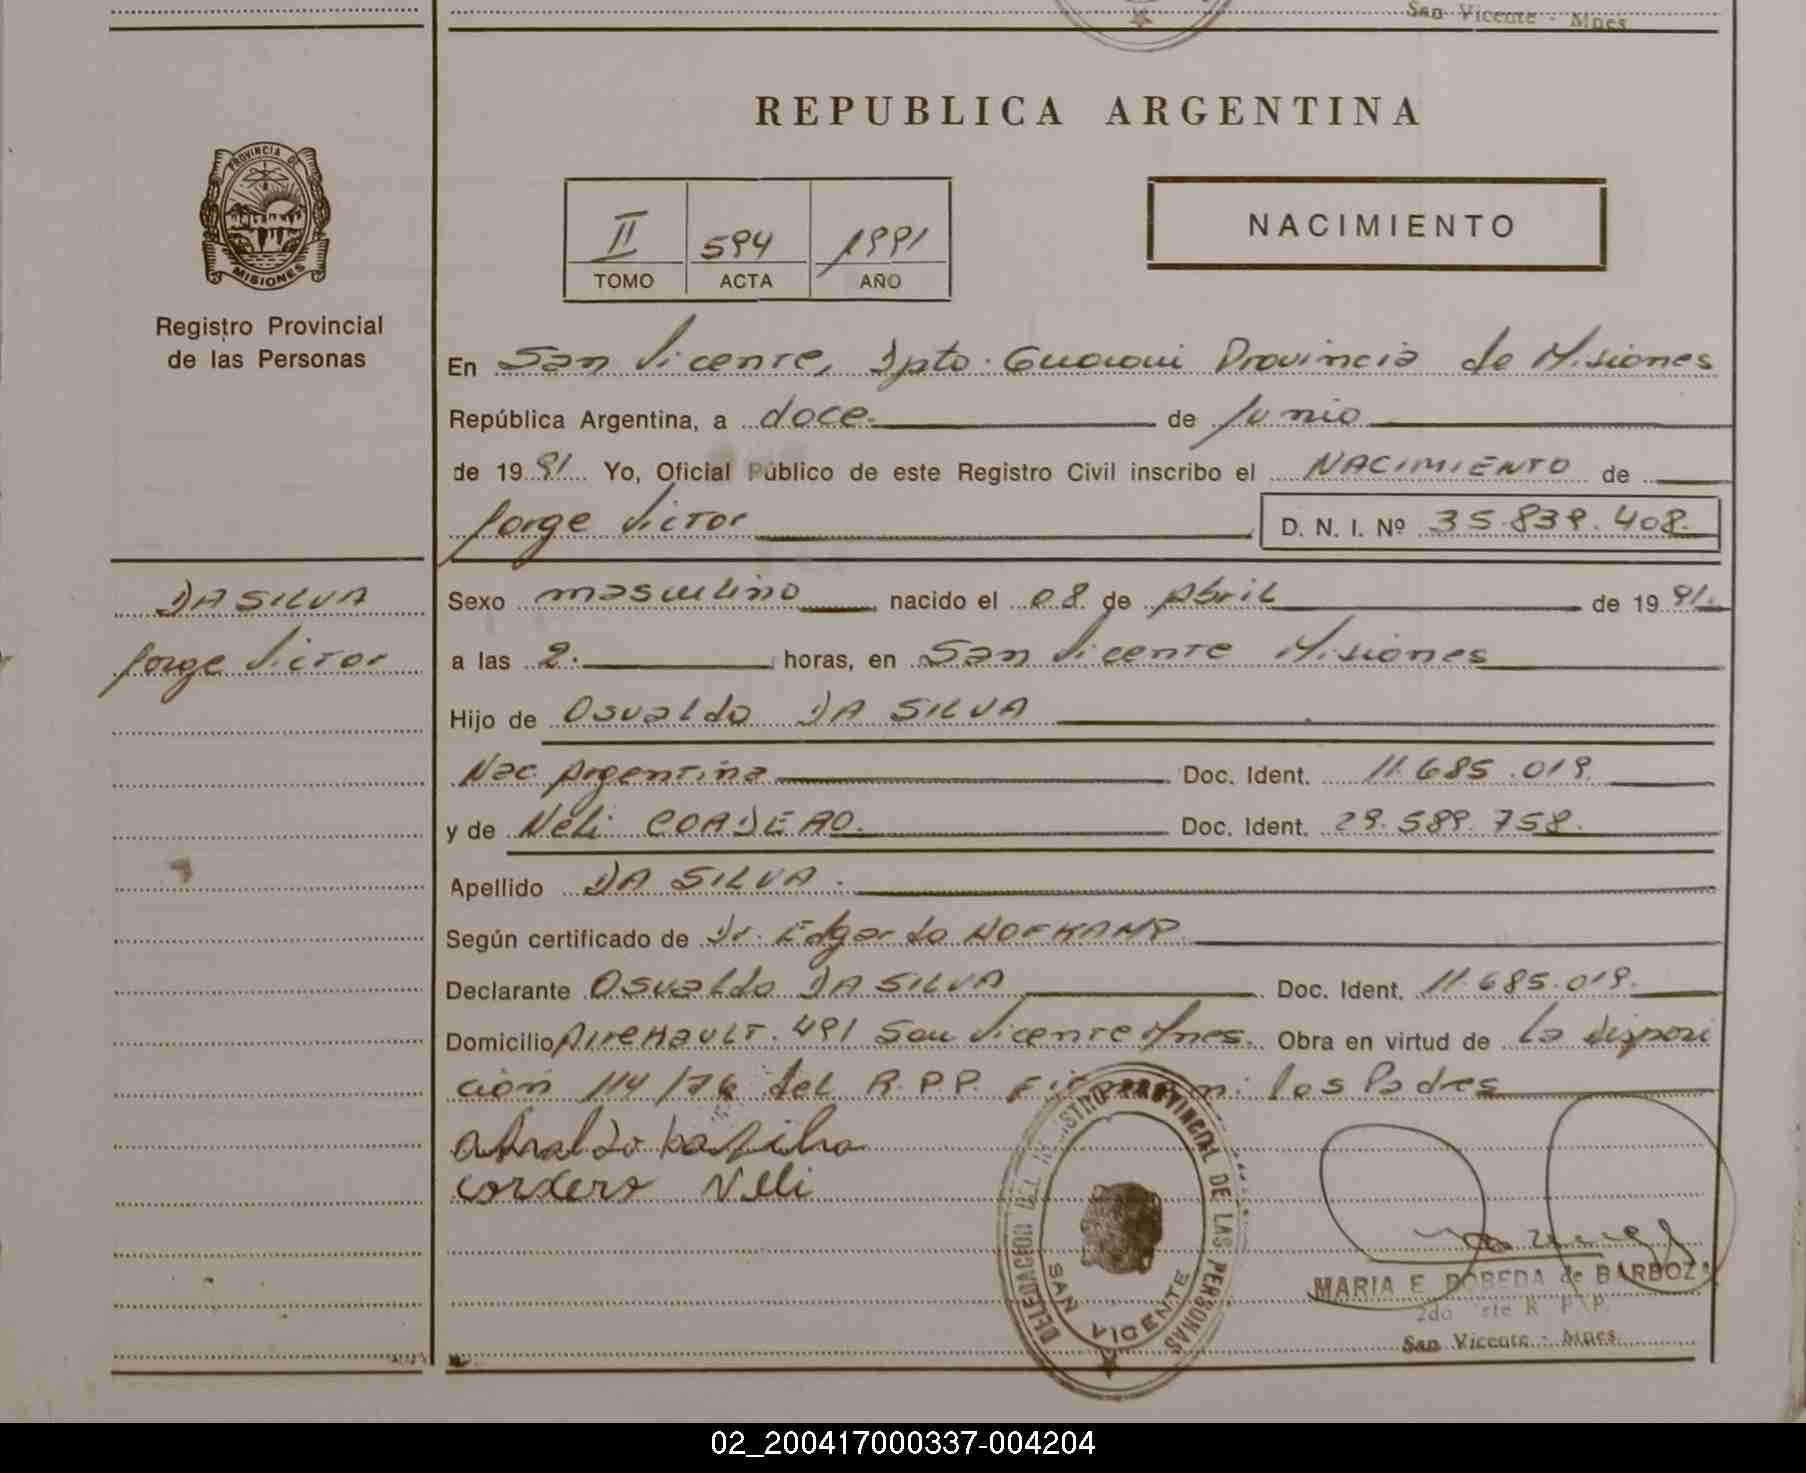 San Vicente - Mnes
REPUBLICA ARGENTINA
PROVINCIA DE
MISIONES
Registro Provincial
de las Personas
II 594 1991
TOMO ACTA AÑO
NACIMIENTO
En San Vicente, Dpto. Guarani Provincia de Misiones
República Argentina, a doce. de Junio
de 1991 Yo, Oficial Público de este Registro Civil inscribo el NACIMIENTO de
Jorge Victor D. N. I. Nº 35.839.408.
DA SILVA
Jorge Victor
Sexo masculino nacido el 08 de Abril de 1991.
a las 2. horas, en San Vicente Misiones
Hijo de Osvaldo DA SILVA
Nac. Argentina Doc. Ident. 11.685.019.
y de Neli CORDERO. Doc. Ident. 29.589.758.
Apellido DA SILVA.
Según certificado de Dr. Edgardo HOFKAMP
Declarante Osvaldo DA SILVA Doc. Ident. 11.685.019.
Domicilio 491 San Vicente Mnes. Obra en virtud de la disposi
ción 114/76 del R.P.P. Firman: los Padres
Cordero Neli
DELEGACION DEL REGISTRO PROVINCIAL DE LAS PERSONAS
SAN VICENTE
MARIA E. BOBEDA de BARBOZA
2da R. P. P.
San Vicente - Mnes.
02_200417000337-004204